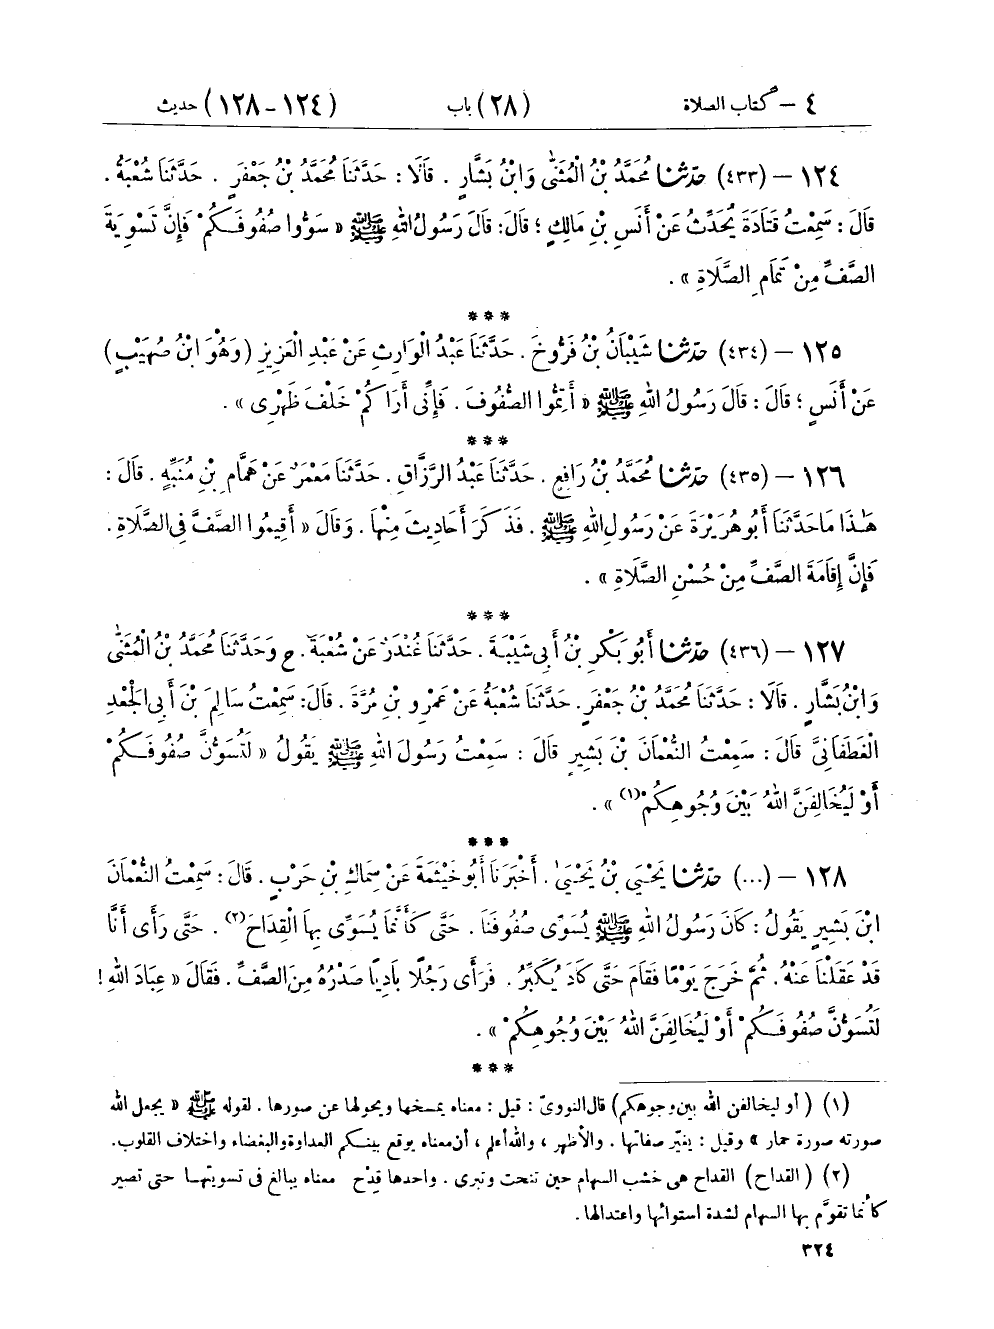 ٤ – كتاب الصلاة (٢٨) باب (١٢٤ – ١٢٨) حديث
١٢٤ – (٤٣٣) حَدَّثَنَا مُحَمَّدُ بْنُ الْمُثَنَّىٰ وَابْنُ بَشَّارٍ . قَالَا : حَدَّثَنَا مُحَمَّدُ بْنُ جَعْفَرٍ . حَدَّثَنَا شُعْبَةُ .
قَالَ : سَمِعْتُ قَتَادَةَ يُحَدِّثُ عَنْ أَنَسِ بْنِ مَالِكٍ ؛ قَالَ: قَالَ رَسُولُ اللهِ ﷺ « سَوُّوا صُفُوفَكُمْ فَإِنَّ تَسْوِيَةَ
الصَّفِّ مِنْ تَمَامِ الصَّلَاةِ » .
***
١٢٥ – (٤٣٤) حَدَّثَنَا شَيْبَانُ بْنُ فَرُّوخَ . حَدَّثَنَا عَبْدُ الْوَارِثِ عَنْ عَبْدِ الْعَزِيزِ (وَهُوَ ابْنُ صُهَيْبٍ)
عَنْ أَنَسٍ ؛ قَالَ : قَالَ رَسُولُ اللهِ ﷺ « أَتِمُّوا الصُّفُوفَ . فَإِنِّى أَرَاكُمْ خَلْفَ ظَهْرِى » .
***
١٢٦ – (٤٣٥) حَدَّثَنَا مُحَمَّدُ بْنُ رَافِعٍ . حَدَّثَنَا عَبْدُ الرَّزَّاقِ . حَدَّثَنَا مَعْمَرٌ عَنْ هَمَّامِ بْنِ مُنَبِّهٍ . قَالَ :
هَٰذَا مَا حَدَّثَنَا أَبُو هُرَيْرَةَ عَنْ رَسُولِ اللهِ ﷺ . فَذَكَرَ أَحَادِيثَ مِنْهَا . وَقَالَ « أَقِيمُوا الصَّفَّ فِى الصَّلَاةِ .
فَإِنَّ إِقَامَةَ الصَّفِّ مِنْ حُسْنِ الصَّلَاةِ » .
***
١٢٧ – (٤٣٦) حَدَّثَنَا أَبُو بَكْرِ بْنُ أَبِى شَيْبَةَ . حَدَّثَنَا غُنْدَرٌ عَنْ شُعْبَةَ . ح وَحَدَّثَنَا مُحَمَّدُ بْنُ الْمُثَنَّىٰ
وَابْنُ بَشَّارٍ . قَالَا : حَدَّثَنَا مُحَمَّدُ بْنُ جَعْفَرٍ. حَدَّثَنَا شُعْبَةُ عَنْ عَمْرِو بْنِ مُرَّةَ . قَالَ: سَمِعْتُ سَالِمَ بْنَ أَبِى الْجَعْدِ
الْغَطَفَانِىَّ قَالَ : سَمِعْتُ النُّعْمَانَ بْنَ بَشِيرٍ قَالَ : سَمِعْتُ رَسُولَ اللهِ ﷺ يَقُولُ « لَتُسَوُّنَّ صُفُوفَكُمْ
أَوْ لَيُخَالِفَنَّ اللهُ بَيْنَ وُجُوهِكُمْ(١) » .
***
١٢٨ – (...) حَدَّثَنَا يَحْيَىٰ بْنُ يَحْيَىٰ . أَخْبَرَنَا أَبُو خَيْثَمَةَ عَنْ سِمَاكِ بْنِ حَرْبٍ . قَالَ : سَمِعْتُ النُّعْمَانَ
ابْنَ بَشِيرٍ يَقُولُ : كَانَ رَسُولُ اللهِ ﷺ يُسَوِّى صُفُوفَنَا . حَتَّى كَأَنَّمَا يُسَوِّى بِهَا الْقِدَاحَ(٢) . حَتَّى رَأَى أَنَّا
قَدْ عَقَلْنَا عَنْهُ . ثُمَّ خَرَجَ يَوْمًا فَقَامَ حَتَّى كَادَ يُكَبِّرُ . فَرَأَى رَجُلًا بَادِيًا صَدْرُهُ مِنَ الصَّفِّ . فَقَالَ « عِبَادَ اللهِ !
لَتُسَوُّنَّ صُفُوفَكُمْ أَوْ لَيُخَالِفَنَّ اللهُ بَيْنَ وُجُوهِكُمْ » .
***
(١) ( أو ليخالفن الله بين وجوهكم) قال النووىّ : قيل : معناه يمسخها ويحولها عن صورها . لقوله ﷺ « يجعل الله
صورته صورة حمار » وقيل : يغيّر صفاتها . والأظهر ، والله أعلم ، أن معناه يوقع بينكم العداوة والبغضاء واختلاف القلوب.
(٢) ( القداح) القداح هى خشب السهام حين تنحت وتبرى . واحدها قِدْح معناه يبالغ فى تسويتها حتى تصير
كأنما تقوّم بها السهام لشدة استوائها واعتدالها .
٣٢٤